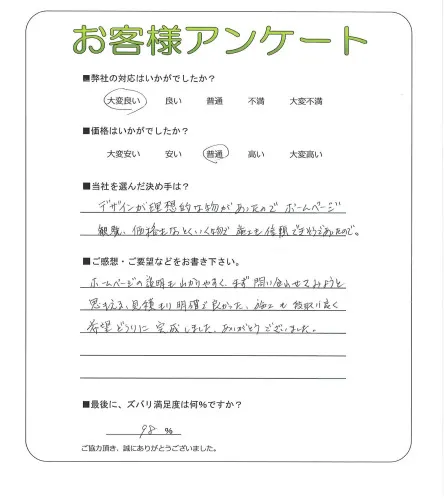 お客様アンケート
■弊社の対応はいかがでしたか？
大変良い 良い 普通 不満 大変不満
■価格はいかがでしたか？
大変安い 安い 普通 高い 大変高い
■当社を選んだ決め手は？
デザインが理想的な物があったので ホームページ
価格も 施工も信頼できそうであったので。
■ご感想・ご要望などをお書き下さい。
ホームページの説明もわかりやすく、まず問い合わせてみようと
思えた。見積もり明確で良かった。施工も段取り良く
希望どうりに完成しました。ありがとうございました。
■最後に、ズバリ満足度は何％ですか？
98 %
ご協力頂き、誠にありがとうございました。